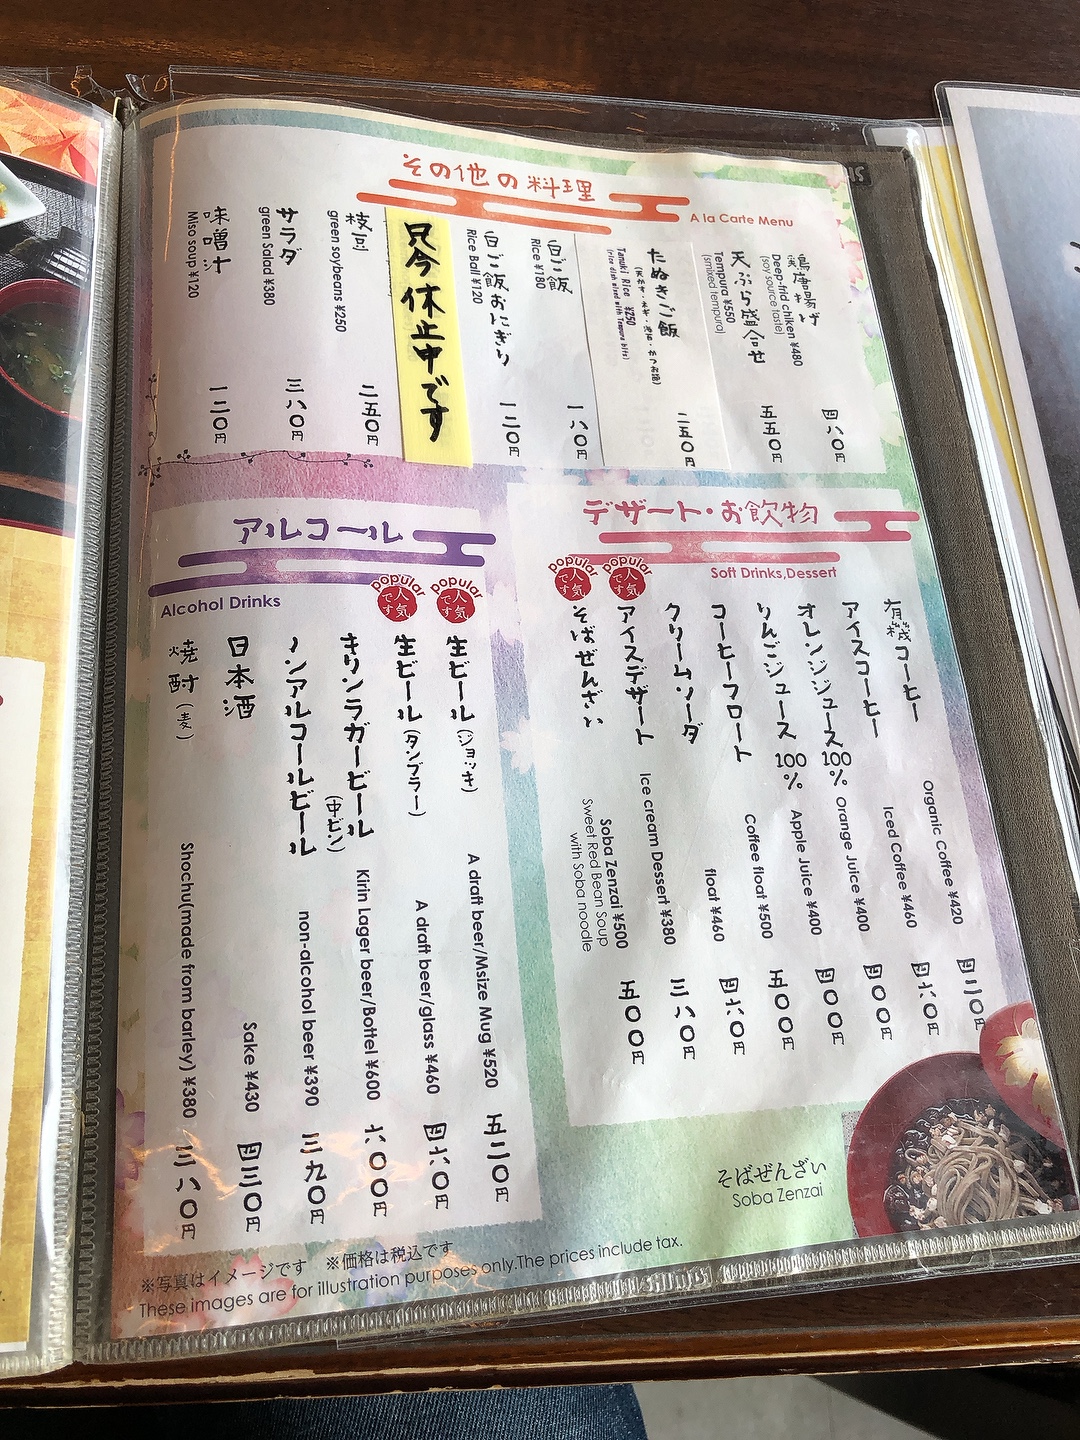 その他の料理
A la Carte Menu
鳥唐揚げ
Deep-frid chiken ¥480
(soy source taste)
四八〇円
天ぷら盛合せ
Tempura ¥550
(smixed tempura)
五五〇円
たぬきご飯
Tanuki Rice ¥250
(rice dish mixed with Tempura bits)
二五〇円
白ご飯
Rice ¥180
一八〇円
白ご飯おにぎり
Rice Ball ¥120
一二〇円
只今休止中です
枝豆
green soybeans ¥250
二五〇円
サラダ
green Salad ¥380
三八〇円
味噌汁
Miso soup ¥120
一二〇円
デザート・お飲物
Soft Drinks,Dessert
有機コーヒー
Organic Coffee ¥420
四二〇円
アイスコーヒー
Iced Coffee ¥460
四六〇円
オレンジジュース100%
Orange Juice ¥400
四〇〇円
りんごジュース100%
Apple Juice ¥400
四〇〇円
コーヒーフロート
Coffee float ¥500
五〇〇円
クリームソーダ
float ¥460
四六〇円
popular
人気です
アイスデザート
Ice cream Dessert ¥380
三八〇円
popular
人気です
そばぜんざい
Soba Zenzai ¥500
Sweet Red Bean Soup
with Soba noodle
五〇〇円
アルコール
Alcohol Drinks
popular
人気です
生ビール(ジョッキ)
A draft beer/Msize Mug ¥520
五二〇円
popular
人気です
生ビール(タンブラー)
A draft beer/glass ¥460
四六〇円
キリンラガービール
(中ビン)
Kirin Lager beer/Bottel ¥600
六〇〇円
ノンアルコールビール
non-alcohol beer ¥390
三九〇円
日本酒
Sake ¥430
四三〇円
焼酎(麦)
Shochu(made from barley) ¥380
三八〇円
そばぜんざい
Soba Zenzai
※写真はイメージです ※価格は税込です
These images are for illustration purposes only.The prices include tax.